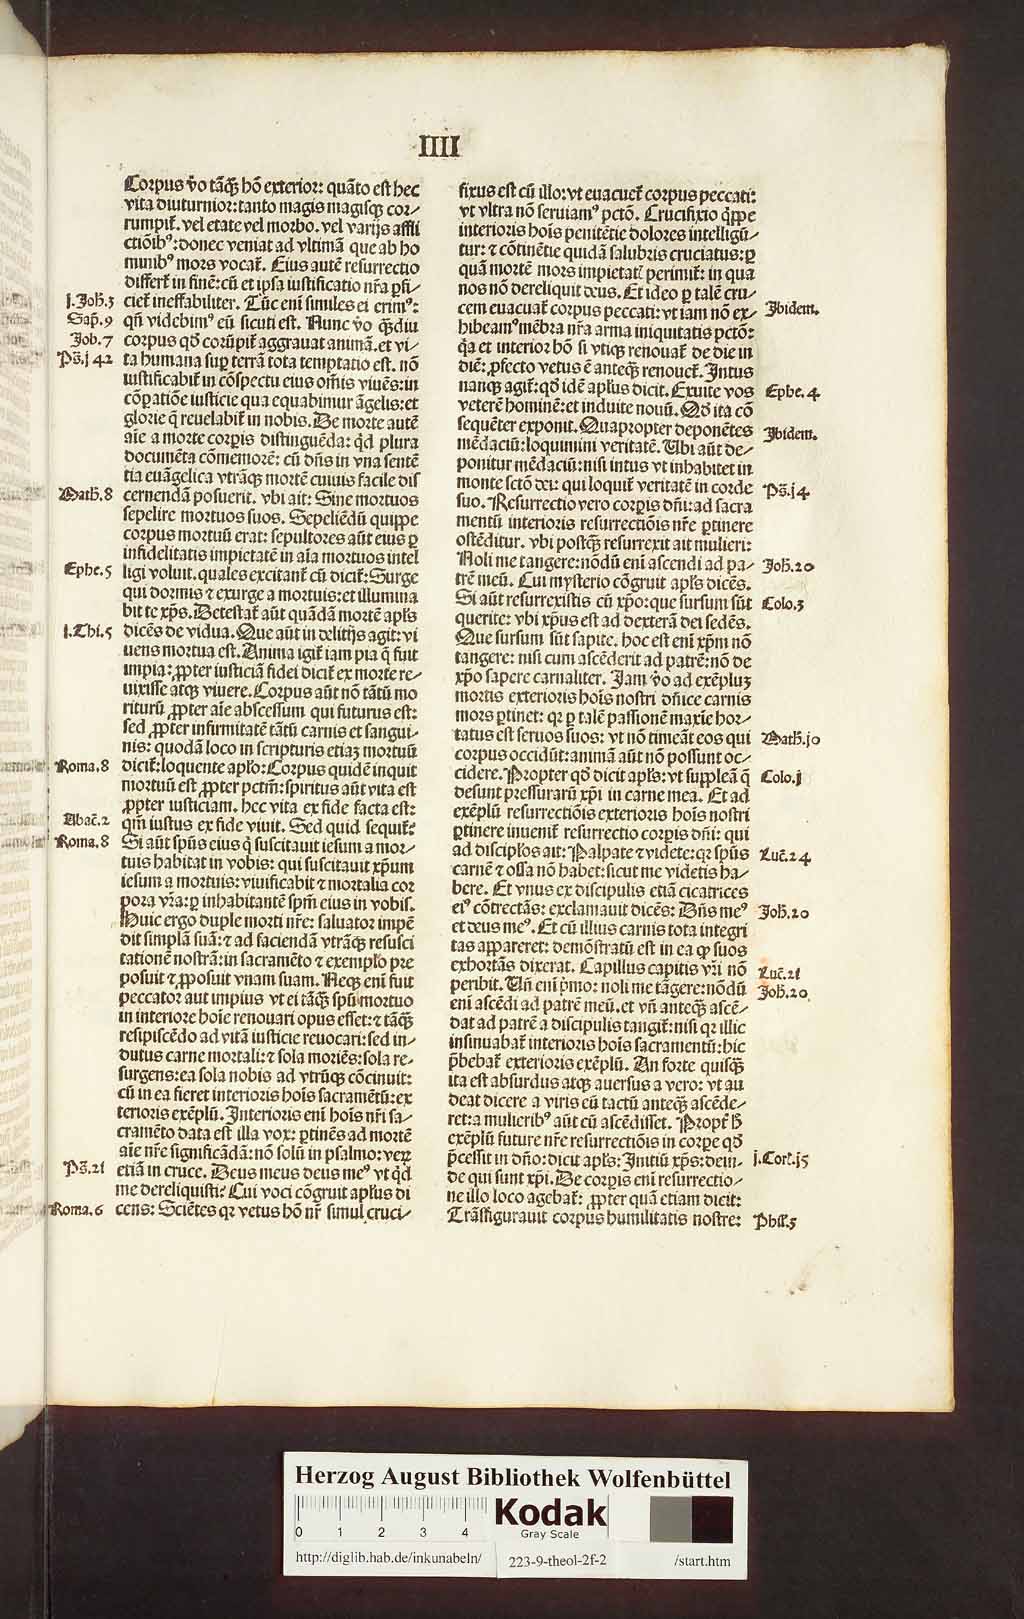 IIII
Corpus v̄o tāq̄ȝ hō exterior: quāto est hec
vita diuturnior: tanto magis magisq̄ȝ cor⸗
rumpit̄. vel etate vel morbo. vel varijs affli
ctiōibꝰ: donec veniat ad vltimā que ab ho
minibꝰ mors vocat̄. Eius autē resurrectio
differt̄ in finē: cū et ip̄a iustificatio nr̄a ꝑfi⸗
j.Joh̄.3 ciet̄ ineffabiliter. Tūc eni similes ei erimꝰ:
Sap̄.9 qn̄ videbimꝰ eū sicuti est. Nunc v̄o q̄ȝdiu
Job.7 corpus qd̄ corūpit̄ aggrauat animā. et vi⸗
Ps̄.j42 ta humana suꝑ terrā tota temptatio est. nō
iustificabit̄ in cōspectu eius om̄is viuēs: in
cōꝑatiōe iusticie qua equabimur āgelis: et
glorie q̄ reuelabit̄ in nobis. De morte autē
aīe a morte corꝑis distinguēda: qd̄ plura
documēta cōmemorē: cū dn̄s in vna sentē
tia euāgelica vtrāq̄ȝ mortē cuiuis facile dis
Math̄.8 cernendā posuerit. vbi ait: Sine mortuos
sepelire mortuos suos. Sepeliēdū quippe
corpus mortuū erat: sepultores aūt eius ꝑ
infidelitatis impietatē in aīa mortuos intel
Ephe.5 ligi voluit. quales excitant̄ cū dicit̄: Surge
qui dormis ⁊ exurge a mortuis: et illumina
bit te xp̄s. Detestat̄ aūt quādā mortē apl̄s
j.Thi.5 dicēs de vidua. Que aūt in delitijs agit: vi
uens mortua est. Anima igit̄ iam pia q̄ fuit
impia: ꝓpter iusticiā fidei dicit̄ ex morte re⸗
uixisse atq̄ȝ viuere. Corpus aūt nō tātū mo
riturū ꝓpter aīe abscessum qui futurus est:
sed ꝓpter infirmitatē tātū carnis et sangui⸗
nis: quodā loco in scripturis etiaȝ mortuū
Roma.8 dicit̄: loquente apl̄o: Corpus quidē inquit
mortuū est ꝓpter pctm̄: spiritus aūt vita est
ꝓpter iusticiam. hec vita ex fide facta est:
Abac̄.2 qm̄ iustus ex fide viuit. Sed quid sequit̄:
Roma.8 Si aūt sp̄us eius q̇ suscitauit iesum a mor⸗
tuis habitat in vobis: qui suscitauit xp̄um
iesum a mortuis: viuificabit ⁊ mortalia cor
pora vr̄a: ꝑ inhabitantē sp̄m eius in vobis.
Huic ergo duple morti nr̄e: saluator impē
dit simplā suā: ⁊ ad faciendā vtrāq̄ȝ resusci
tationē nostrā: in sacramēto ⁊ exemplo pre
posuit ⁊ ꝓposuit vnam suam. Neq̄ȝ eni fuit
peccator aut impius vt ei tāq̄ȝ sp̄u mortuo
in interiore hoīe renouari opus esset: ⁊ tāq̄ȝ
resipiscēdo ad vitā iusticie reuocari: sed in⸗
dutus carne mortali: ⁊ sola moriēs: sola re⸗
surgens: ea sola nobis ad vtrūq̄ȝ cōcinuit:
cū in ea fieret interioris hoīs sacramētū: ex
terioris exēplū. Interioris eni hoīs nr̄i sa⸗
cramēto data est illa vox: ꝑtinēs ad mortē
aīe nr̄e significādā: nō solū in psalmo: veꝝ
Ps̄.21 etiā in cruce. Deus meus deus meꝰ vt qd̄
me dereliquisti? Cui voci cōgruit apl̄us di
Roma.6 cens: Sciētes qꝛ vetus hō nr̄ simul cruci⸗
fixus est cū illo: vt euacuet̄ corpus peccati:
vt vltra nō seruiamꝰ pctō. Crucifixio q̇ppe
interioris hoīs penitētie dolores intelligū⸗
tur: ⁊ cōtinētie quidā salubris cruciatus: ꝑ
quā mortē mors impietat̄ perimit̄: in qua
nos nō dereliquit deus. Et ideo ꝑ talē cru⸗
cem euacuat̄ corpus peccati: vt iam nō ex⸗ Ibidem.
hibeamꝰ mēbra nr̄a arma iniquitatis pctō:
q̇a et interior hō si vtiq̄ȝ renouat̄ de die in
diē: ꝓfecto vetus ē anteq̄ȝ renouet̄. Intus
nanq̄ȝ agit̄: qd̄ idē apl̄us dicit. Exuite vos Ephe.4.
veterē hominē: et induite nouū. Qd̄ ita cō
sequēter exponit. Quapropter deponētes Ibidem.
mēdaciū: loquimini veritatē. Vbi aūt de⸗
ponitur mēdaciū: nisi intus vt inhabitet in
monte sctō dei: qui loquit̄ veritatē in corde Ps̄.j4.
suo. Resurrectio vero corꝑis dn̄i: ad sacra
mentū interioris resurrectiōis nr̄e ꝑtinere
ostēditur. vbi postq̄ȝ resurrexit ait mulieri:
Noli me tangere: nōdū eni ascendi ad pa⸗ Joh̄.20
trē meū. Cui mysterio cōgruit apl̄s dicēs.
Si aūt resurrexistis cū xp̄o: que sursum sūt Colo.3
querite: vbi xp̄us est ad dexterā dei sedēs.
Que sursum sūt sapite. hoc est eni xp̄m nō
tangere: nisi cum ascēderit ad patrē: nō de
xp̄o sapere carnaliter. Jam v̄o ad exēpluȝ
mortis exterioris hoīs nostri dn̄ice carnis
mors ꝑtinet: qꝛ ꝑ talē passionē maxīe hor⸗
tatus est seruos suos: vt nō timeāt eos qui Math̄.jo
corpus occidūt: animā aūt nō possunt oc⸗
cidere. Propter qd̄ dicit apl̄s: vt suppleā q̄ Colo.j
desunt pressurarū xp̄i in carne mea. Et ad
exēplū resurrectiōis exterioris hoīs nostri
ꝑtinere inuenit̄ resurrectio corꝑis dn̄i: qui
ad discipl̄os ait: Palpate ⁊ videte: qꝛ sp̄us Luc̄.24.
carnē ⁊ ossa nō habet: sicut me videtis ha⸗
bere. Et vnus ex discipulis etiā cicatrices
eiꝰ cōtrectās: exclamauit dicēs: Dn̄s meꝰ Joh̄.20
et deus meꝰ. Et cū illius carnis tota integri
tas appareret: demōstratū est in ea ꝙ suos
exhortās dixerat. Capillus capitis vr̄i nō Luc̄.21
peribit. Vn̄ eni p̄mo: noli me tāgere: nōdū Joh̄.20.
eni ascēdi ad patrē meū. et vn̄ anteq̄ȝ ascē⸗
dat ad patrē a discipulis tangit̄: nisi qꝛ illic
insinuabat̄ interioris hoīs sacramentū: hic
p̄bebat̄ exterioris exēplū. An forte quisq̄ȝ
ita est absurdus atq̄ȝ auersus a vero: vt au
deat dicere a viris cū tactū anteq̄ȝ ascēde⸗
ret: a mulieribꝰ aūt cū ascēdisset. Propt̄ h̄
exēplū future nr̄e resurrectiōis in corꝑe qd̄
p̄cessit in dn̄o: dicit apl̄s: Initiū xp̄s: dein⸗ j.Cor̄.j5
de qui sunt xp̄i. De corꝑis eni resurrectio⸗
ne illo loco agebat̄: ꝓpter quā etiam dicit:
Trāsfigurauit corpus humilitatis nostre: Phil̄.3
Herzog August Bibliothek Wolfenbüttel
0 1 2 3 4
Kodak
Gray Scale
http://diglib.hab.de/inkunabeln/ 223-9-theol-2f-2 /start.htm